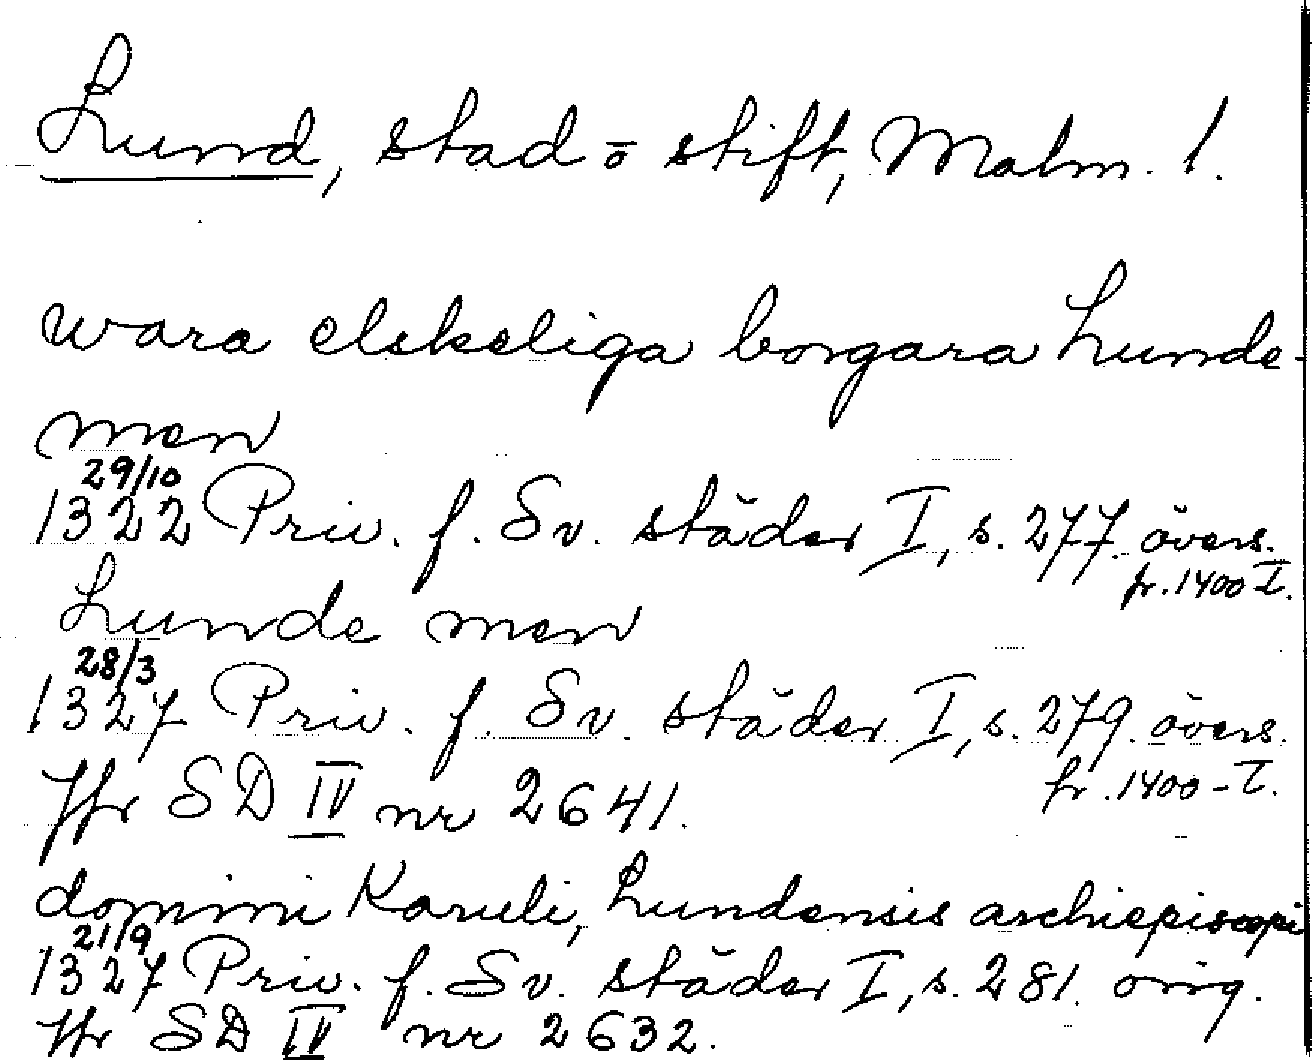 Lund, stad o stift, Malm. l.
wara elskeliga borgara Lunde-
men
29/10
1322 Priv. f. Sv. städer I, s. 277. övers.
fr. 1400-T.
Lunde men
28/3
1327 Priv. f. Sv. städer I, s. 279. övers.
fr. 1400-T.
Jfr SD IV nr 2641.
domini Karuli, Lundensis archiepiscopi
21/9
1327 Priv. f. Sv. städer I, s. 281. orig.
Jfr SD IV nr 2632.